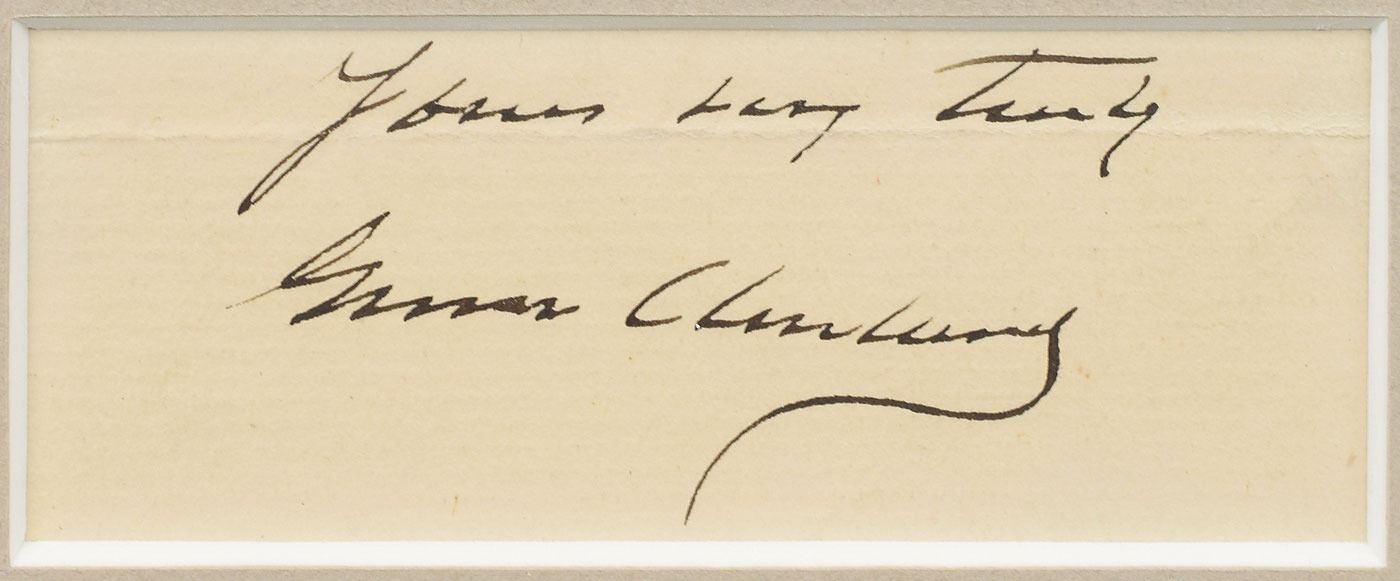 Yours very truly
Grover Cleveland